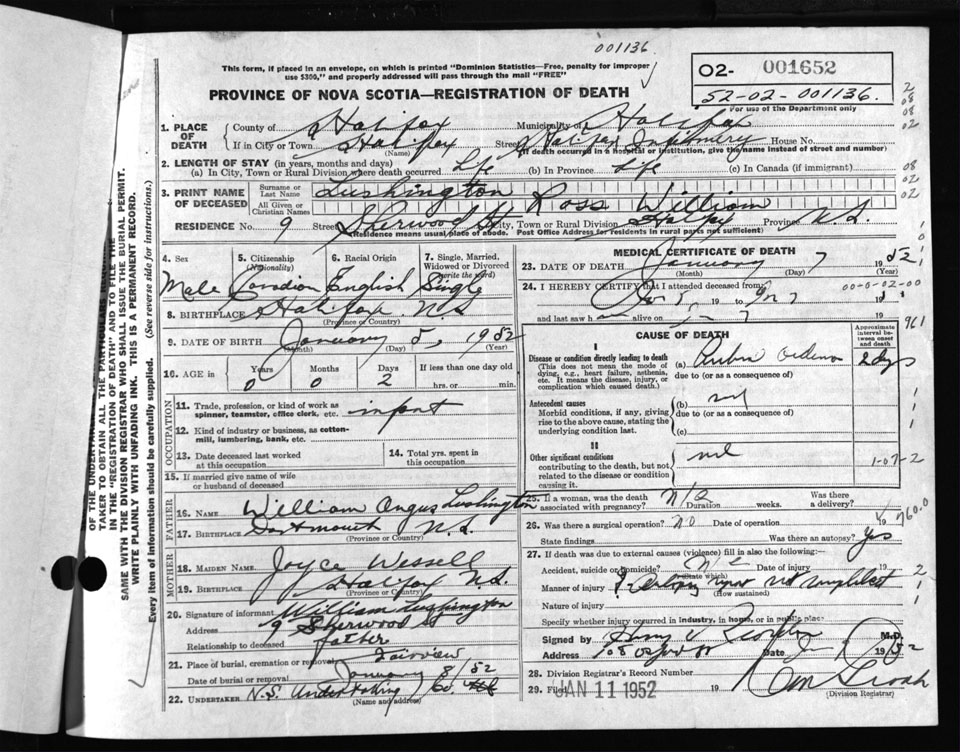 001136
This form, if placed in an envelope, on which is printed "Dominion Statistics—Free, penalty for improper
use $300," and properly addressed will pass through the mail "FREE"
02- 001652
52-02-001136.
For use of the Department only
PROVINCE OF NOVA SCOTIA—REGISTRATION OF DEATH
1. PLACE OF DEATH
County of Halifax Municipality of Halifax
If in City or Town Halifax Street Infirmary House No.
(Name) (If death occurred in a hospital or institution, give the name instead of street and number)
2. LENGTH OF STAY (in years, months and days)
(a) In City, Town or Rural Division where death occurred Life (b) In Province Life (c) In Canada (if immigrant)
3. PRINT NAME OF DECEASED
Surname or Last Name Lushington
All Given or Christian Names Ross William
RESIDENCE No. 9 Street Sherwood St City, Town or Rural Division Halifax Province N.S.
(Residence means usual place of abode. Post Office Address for residents in rural parts not sufficient)
4. Sex Male
5. Citizenship (Nationality) Canadian
6. Racial Origin English
7. Single, Married, Widowed or Divorced (write the word) Single
8. BIRTHPLACE Halifax N.S.
(Province or Country)
9. DATE OF BIRTH January 5, 1952
(Month) (Day) (Year)
10. AGE in Years 0 Months 0 Days 2 If less than one day
hrs. or min.
OCCUPATION
11. Trade, profession, or kind of work as
spinner, teamster, office clerk, etc. infant
12. Kind of industry or business, as cotton-
mill, lumbering, bank, etc.
13. Date deceased last worked
at this occupation
14. Total yrs. spent in
this occupation
15. If married give name of wife
or husband of deceased
FATHER
16. NAME William Angus Lushington
17. BIRTHPLACE Dartmouth N.S.
(Province or Country)
MOTHER
18. MAIDEN NAME Joyce Wessell
19. BIRTHPLACE Halifax N.S.
(Province or Country)
20. Signature of informant William Lushington
Address 9 Sherwood St
Relationship to deceased father
21. Place of burial, cremation or removal Fairview
Date of burial or removal January 8/52
22. UNDERTAKER N.S. Undertaking Co.
(Name and address)
MEDICAL CERTIFICATE OF DEATH
23. DATE OF DEATH January 7 1952
(Month) (Day) (Year)
24. I HEREBY CERTIFY that I attended deceased from
Jan 5 19 to Jan 7 19
and last saw h alive on 19
00-0-02-00
961
CAUSE OF DEATH
Approximate interval between onset and death
I
Disease or condition directly leading to death
(This does not mean the mode of
dying, e.g., heart failure, asthenia,
etc. It means the disease, injury, or
complication which caused death.)
(a) 2 dys
due to (or as a consequence of)
Antecedent causes
Morbid conditions, if any, giving
rise to the above cause, stating the
underlying condition last.
(b) nil
due to (or as a consequence of)
(c)
II
Other significant conditions
contributing to the death, but not
related to the disease or condition
causing it.
nil
1-07-2
25. If a woman, was the death
associated with pregnancy? N/a Duration weeks. Was there
a delivery?
760.0
26. Was there a surgical operation? no Date of operation 19
State findings Was there an autopsy? Yes
27. If death was due to external causes (violence) fill in also the following:—
Accident, suicide or homicide? Date of injury 19
(State which)
Manner of injury
(How sustained)
Nature of injury
Specify whether injury occurred in industry, in home, or in public place
Signed by M.D.
Address Date Jan 1952
28. Division Registrar's Record Number
29. Filed JAN 11 1952 19
(Division Registrar)
OF THE UNDERTAKER
TAKER TO OBTAIN ALL THE PARTICULARS
IN THE "REGISTRATION OF DEATH" AND TO FILE THE
SAME WITH THE DIVISION REGISTRAR WHO SHALL ISSUE THE BURIAL PERMIT.
WRITE PLAINLY WITH UNFADING INK. THIS IS A PERMANENT RECORD.
Every item of information should be carefully supplied. (See reverse side for instructions.)